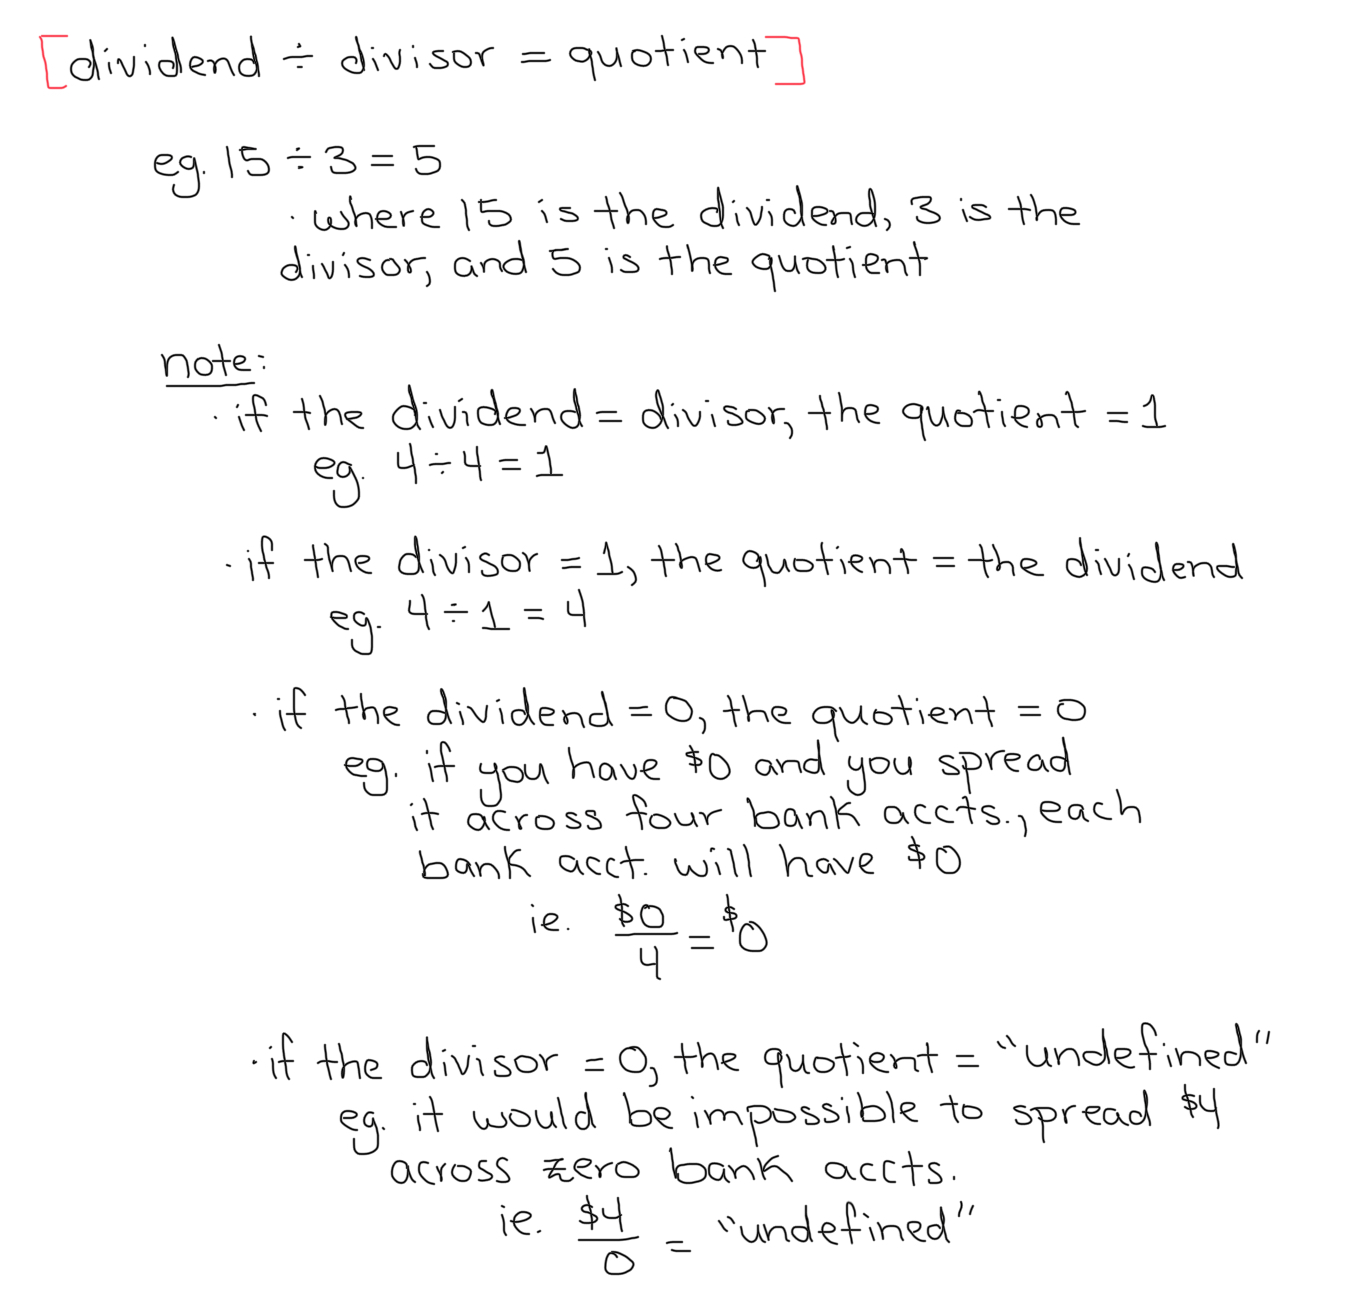 [dividend ÷ divisor = quotient]
eg. 15 ÷ 3 = 5
· where 15 is the dividend, 3 is the
divisor, and 5 is the quotient
note:
· if the dividend = divisor, the quotient = 1
eg. 4 ÷ 4 = 1
· if the divisor = 1, the quotient = the dividend
eg. 4 ÷ 1 = 4
· if the dividend = 0, the quotient = 0
eg. if you have $0 and you spread
it across four bank accts., each
bank acct. will have $0
ie. $0/4 = $0
· if the divisor = 0, the quotient = "undefined"
eg. it would be impossible to spread $4
across zero bank accts.
ie. $4/0 = "undefined"